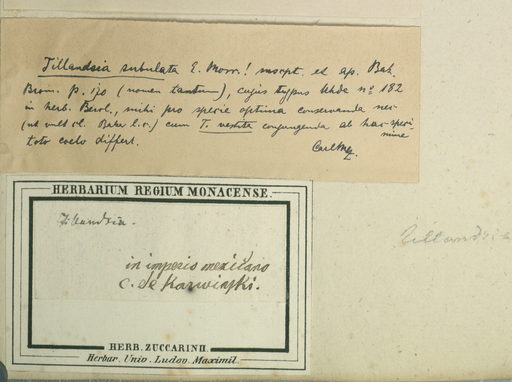 Tillandsia subulata E. Morr.! mscpt. et ap. Bak.
Brom. p. 170 (nomen tantum), cujus typus Uhde nº 182
in herb. Berol., mihi pro specie optima conservanda nec
(ut vult cl. Baker l. c.) cum T. vestita conjungenda ab hac specimine
toto coelo differt.
Carl Mez.
HERBARIUM REGIUM MONACENSE.
Tillandsia.
in imperio mexicano
C. de Karwinski.
HERB. ZUCCARINII.
Herbar. Univ. Ludov. Maximil.
Tillandsia